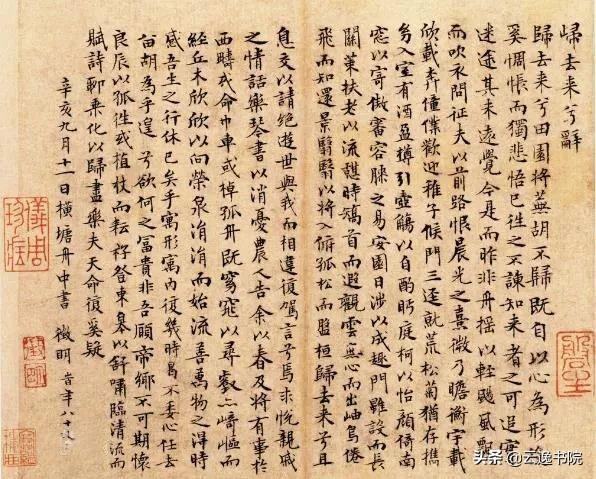 歸去来兮辭
歸去来兮田園将蕪胡不歸既自以心為形役
奚惆悵而獨悲悟已往之不諫知来者之可追寔
迷途其未遠覺今是而昨非舟摇以輕颺風飄
而吹衣問征夫以前路恨晨光之熹微乃瞻衡宇載
欣載奔僮僕歡迎稚子候門三逕就荒松菊猶存攜
幼入室有酒盈樽引壺觴以自酌眄庭柯以怡顔倚南
窓以寄傲審容膝之易安園日涉以成趣門雖設而長
關策扶老以流憩時矯首而遐觀雲無心而出岫鳥倦
飛而知還景翳翳以将入撫孤松而盤桓歸去来兮且
息交以請絶遊世與我而相違復駕言兮焉求悦親戚
之情話樂琴書以消憂農人告余以春及将有事於
西疇或命巾車或棹孤舟既窈窕以尋壑亦崎嶇而
經丘木欣欣以向榮泉涓涓而始流善萬物之得時
感吾生之行休已矣乎寓形寓内復幾時曷不委心任去
留胡為乎遑兮欲何之富貴非吾願帝鄉不可期懷
良辰以孤往或植杖而耘耔登東皋以舒嘯臨清流而
賦詩聊乘化以歸盡樂夫天命復奚疑
辛亥九月十一日横塘舟中書 徵明 旹年八十
头条 @云逸书院